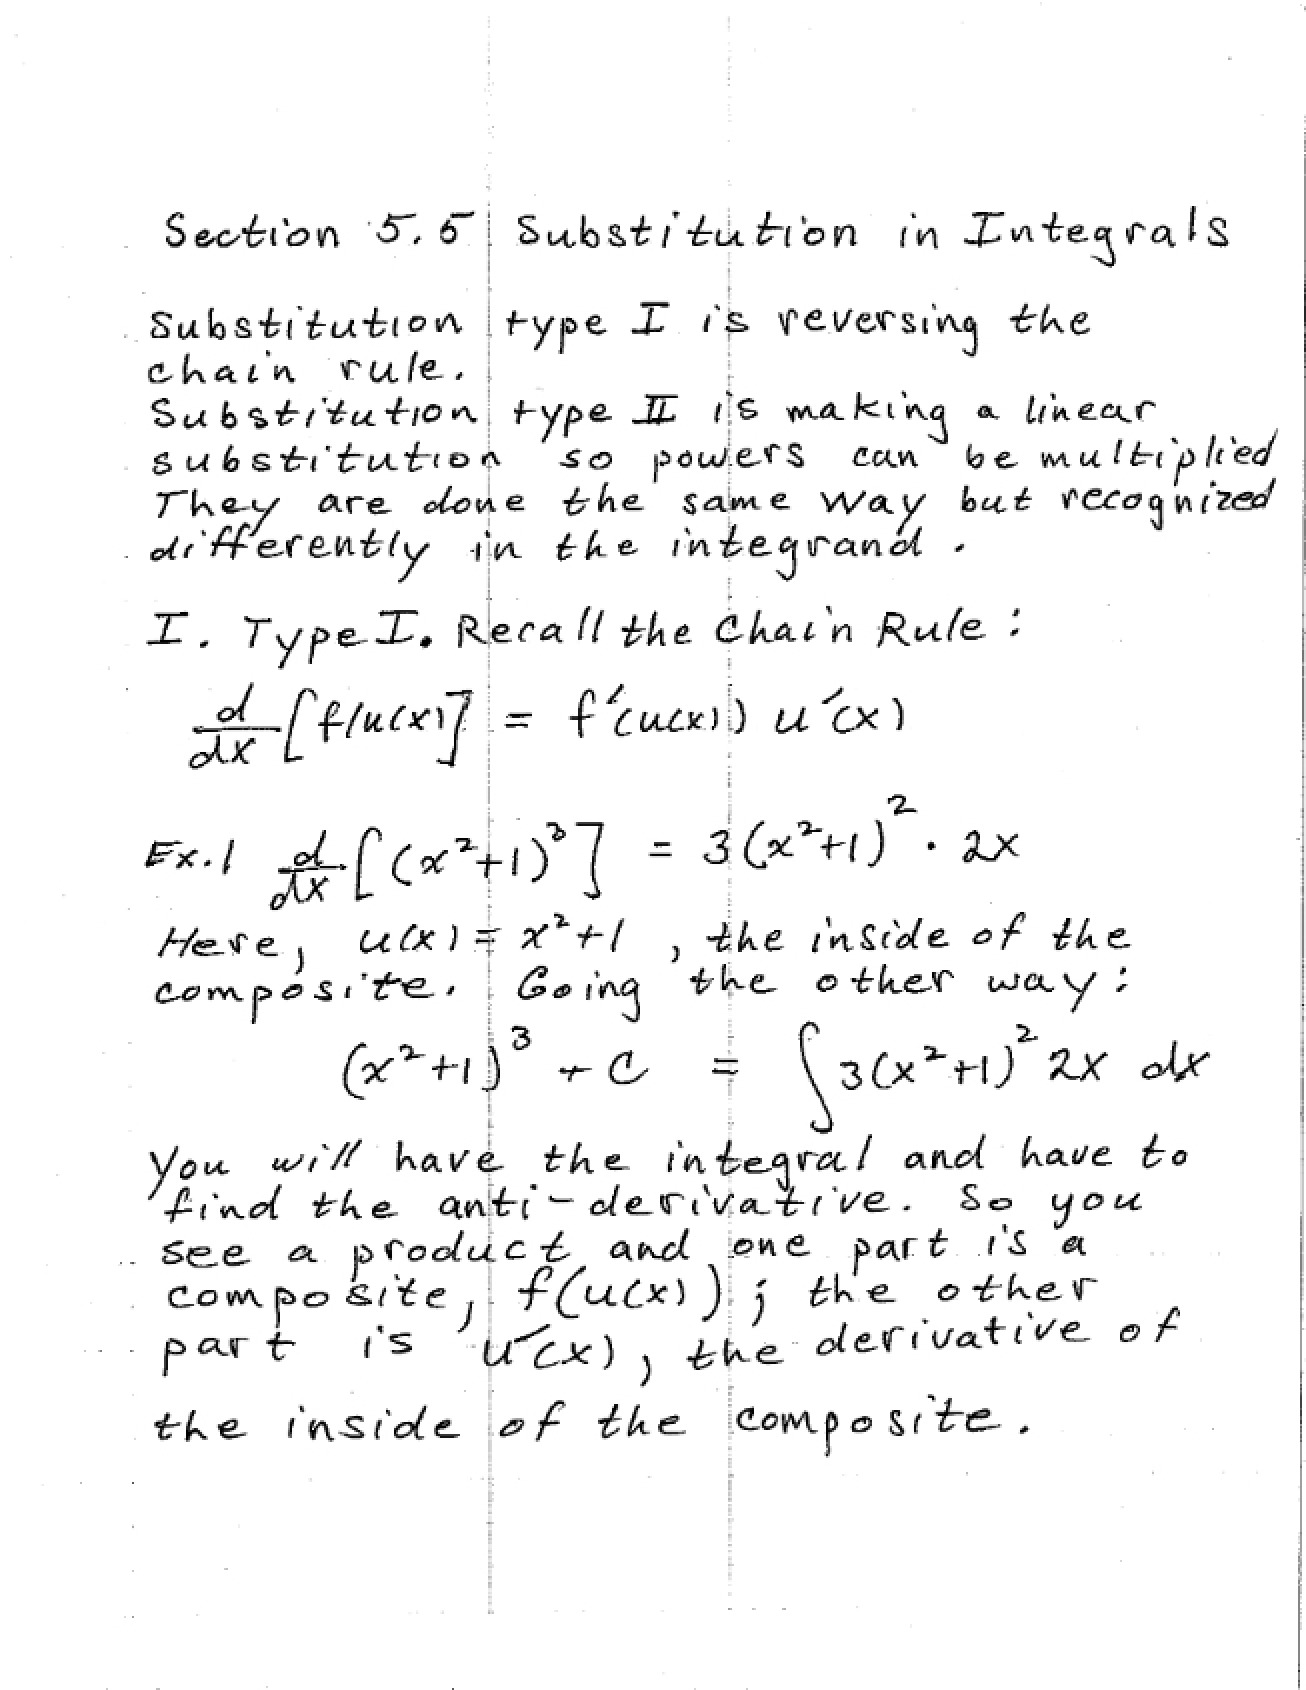 Section 5.5 Substitution in Integrals
Substitution type I is reversing the
chain rule.
Substitution type II is making a linear
substitution so powers can be multiplied
They are done the same way but recognized
differently in the integrand.
I. Type I. Recall the Chain Rule:
d/dx [f(u(x)] = f'(u(x)) u'(x)
Ex.1 d/dx [(x²+1)³] = 3(x²+1)² · 2x
Here, u(x) = x²+1, the inside of the
composite. Going the other way:
(x²+1)³ + C = ∫3(x²+1)² 2x dx
You will have the integral and have to
find the anti-derivative. So you
see a product and one part is a
composite, f(u(x)); the other
part is u'(x), the derivative of
the inside of the composite.